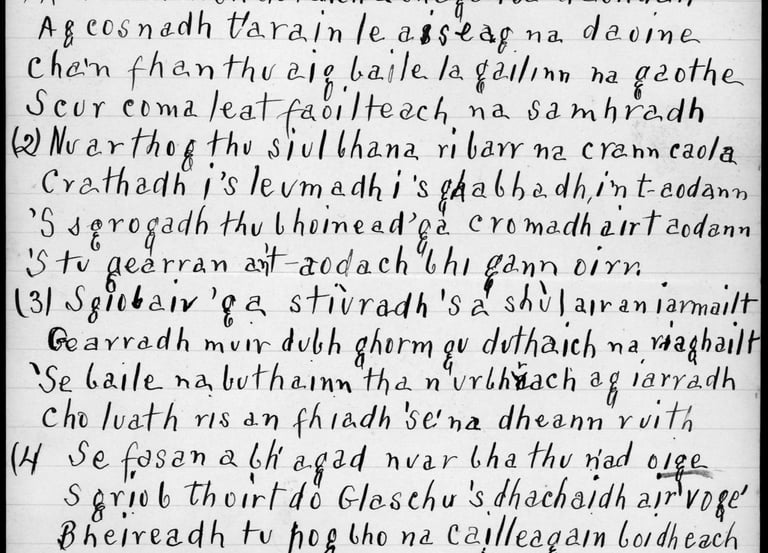 Ag cosnadh t'arain le aiseag na daoine
Cha'n fhan thu aig baile la gailinn na gaothe
Scur coma leat faoilteach na samhradh
(2) Nuar thog thu siul bhana ri barr na crann caola
Crathadh i's leumadh i's gabhadh, i'n t-aodann
'S sgrogadh thu bhoinead 'ga cromadh air t aodann
'S tu gearran an't-aodach bhi gann oirr.
(3) Sgiobair 'ga stiùradh 's a shùl air an iarmailt
Gearradh muir dubh ghorm gu duthaich na riaghailt
'Se baile na buthainn tha n'urbhuach ag iarradh
Cho luath ris an fhiadh 'se 'na dheann ruith
(4 Se fasan a bh' agad nuar bha thu n'ad oige
Sgriob thoirt do Glaschu 's dhachaidh air voge'
Bheireadh tu pog bho na cailleagain boidheach